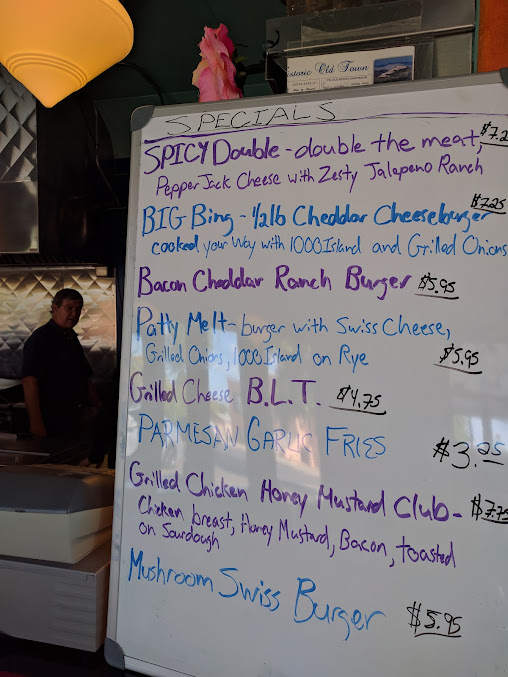 Historic Old Town
SPECIALS
SPICY Double - double the meat, $7.2
Pepper Jack Cheese with Zesty Jalapeno Ranch
$7.25
BIG Bing - 1/2lb Cheddar Cheeseburger
cooked your way with 1000 Island and Grilled Onions
Bacon Cheddar Ranch Burger $5.95
Patty Melt - burger with Swiss Cheese,
Grilled Onions, 1000 Island on Rye $5.95
Grilled Cheese B.L.T. $4.75
PARMESAN GARLIC FRIES $3.25
Grilled Chicken Honey Mustard Club - $7.75
Chicken breast, Honey Mustard, Bacon, toasted
on Sourdough
Mushroom Swiss Burger $5.95